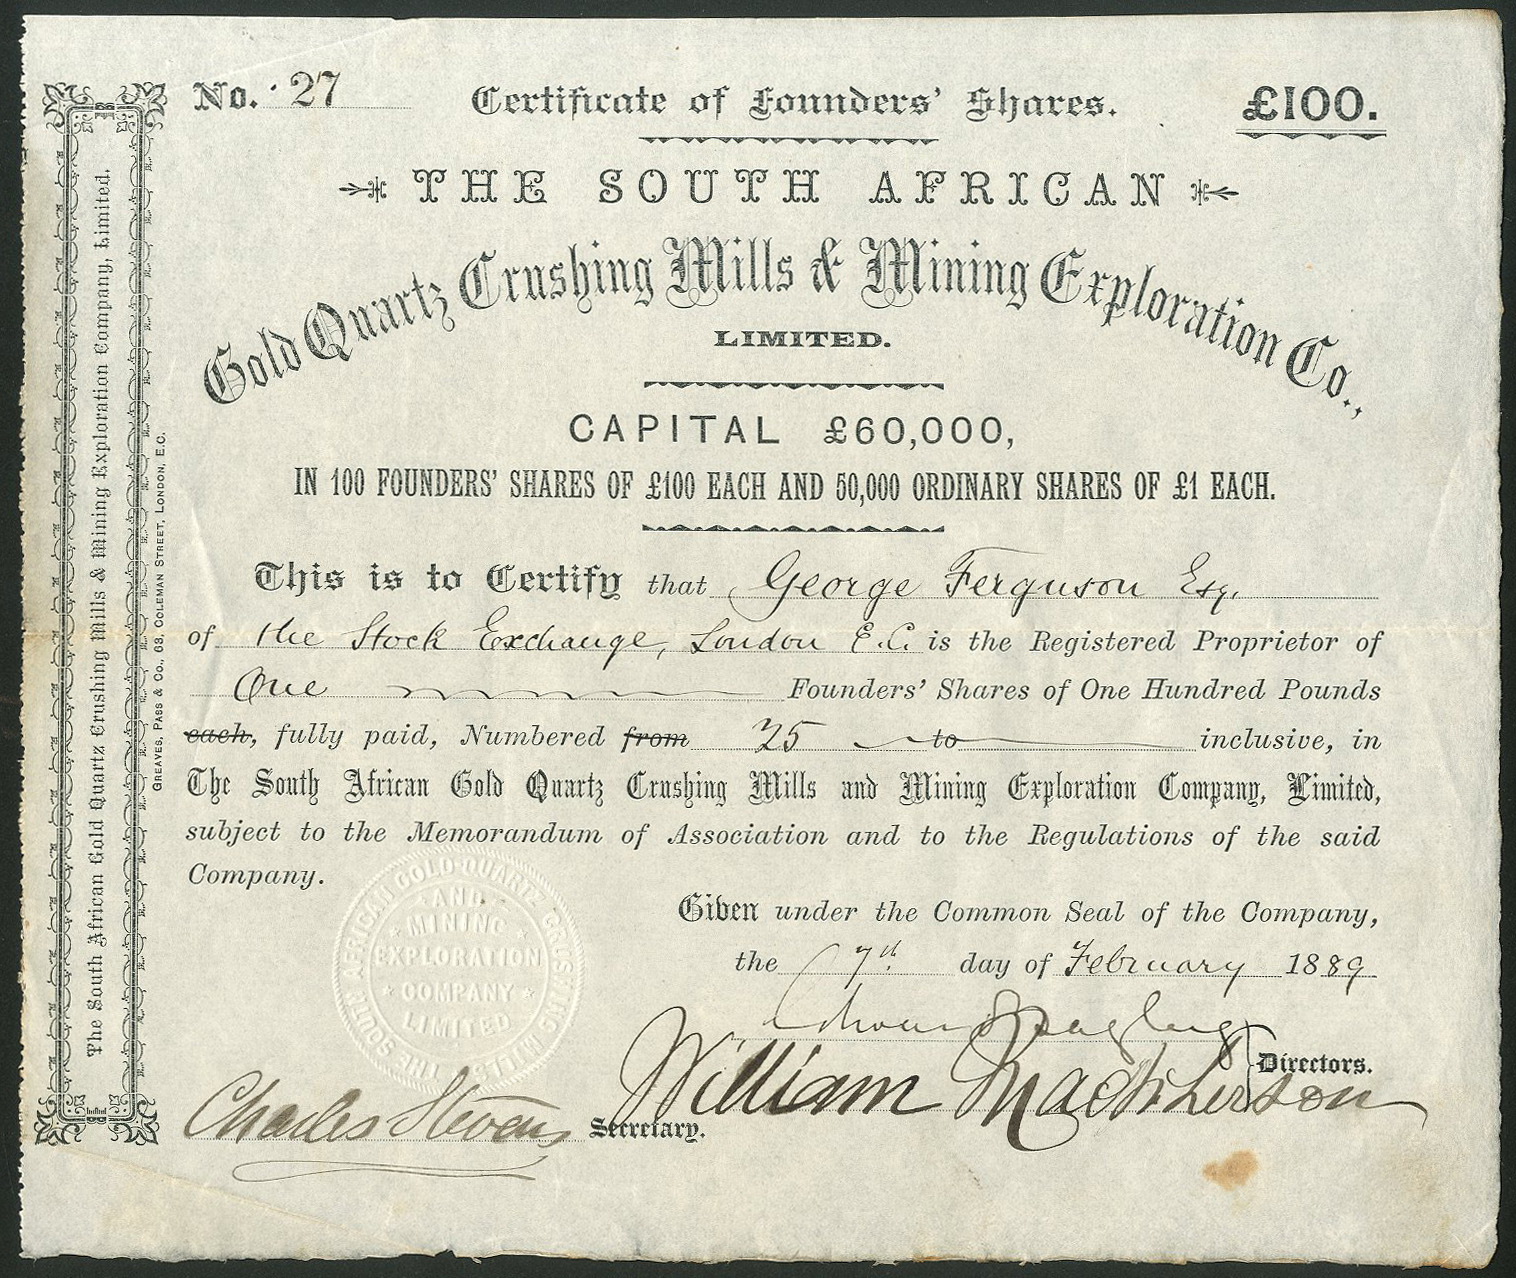 No. 27 Certificate of Founders' Shares. £100.
THE SOUTH AFRICAN
Gold Quartz Crushing Mills & Mining Exploration Co.,
LIMITED.
CAPITAL £60,000,
IN 100 FOUNDERS' SHARES OF £100 EACH AND 50,000 ORDINARY SHARES OF £1 EACH.
This is to Certify that George Ferguson Esq.
of the Stock Exchange, London E.C. is the Registered Proprietor of
One Founders' Shares of One Hundred Pounds
each, fully paid, Numbered from 25 to inclusive, in
The South African Gold Quartz Crushing Mills and Mining Exploration Company, Limited,
subject to the Memorandum of Association and to the Regulations of the said
Company.
Given under the Common Seal of the Company,
the 7th day of February 1889
William Macpherson
Directors.
Charles Stevens Secretary.
THE SOUTH AFRICAN GOLD-QUARTZ CRUSHING MILLS
AND
MINING
EXPLORATION
COMPANY
LIMITED
The South African Gold Quartz Crushing Mills & Mining Exploration Company, Limited.
GREAVES, PASS & CO., 63, COLEMAN STREET, LONDON, E.C.